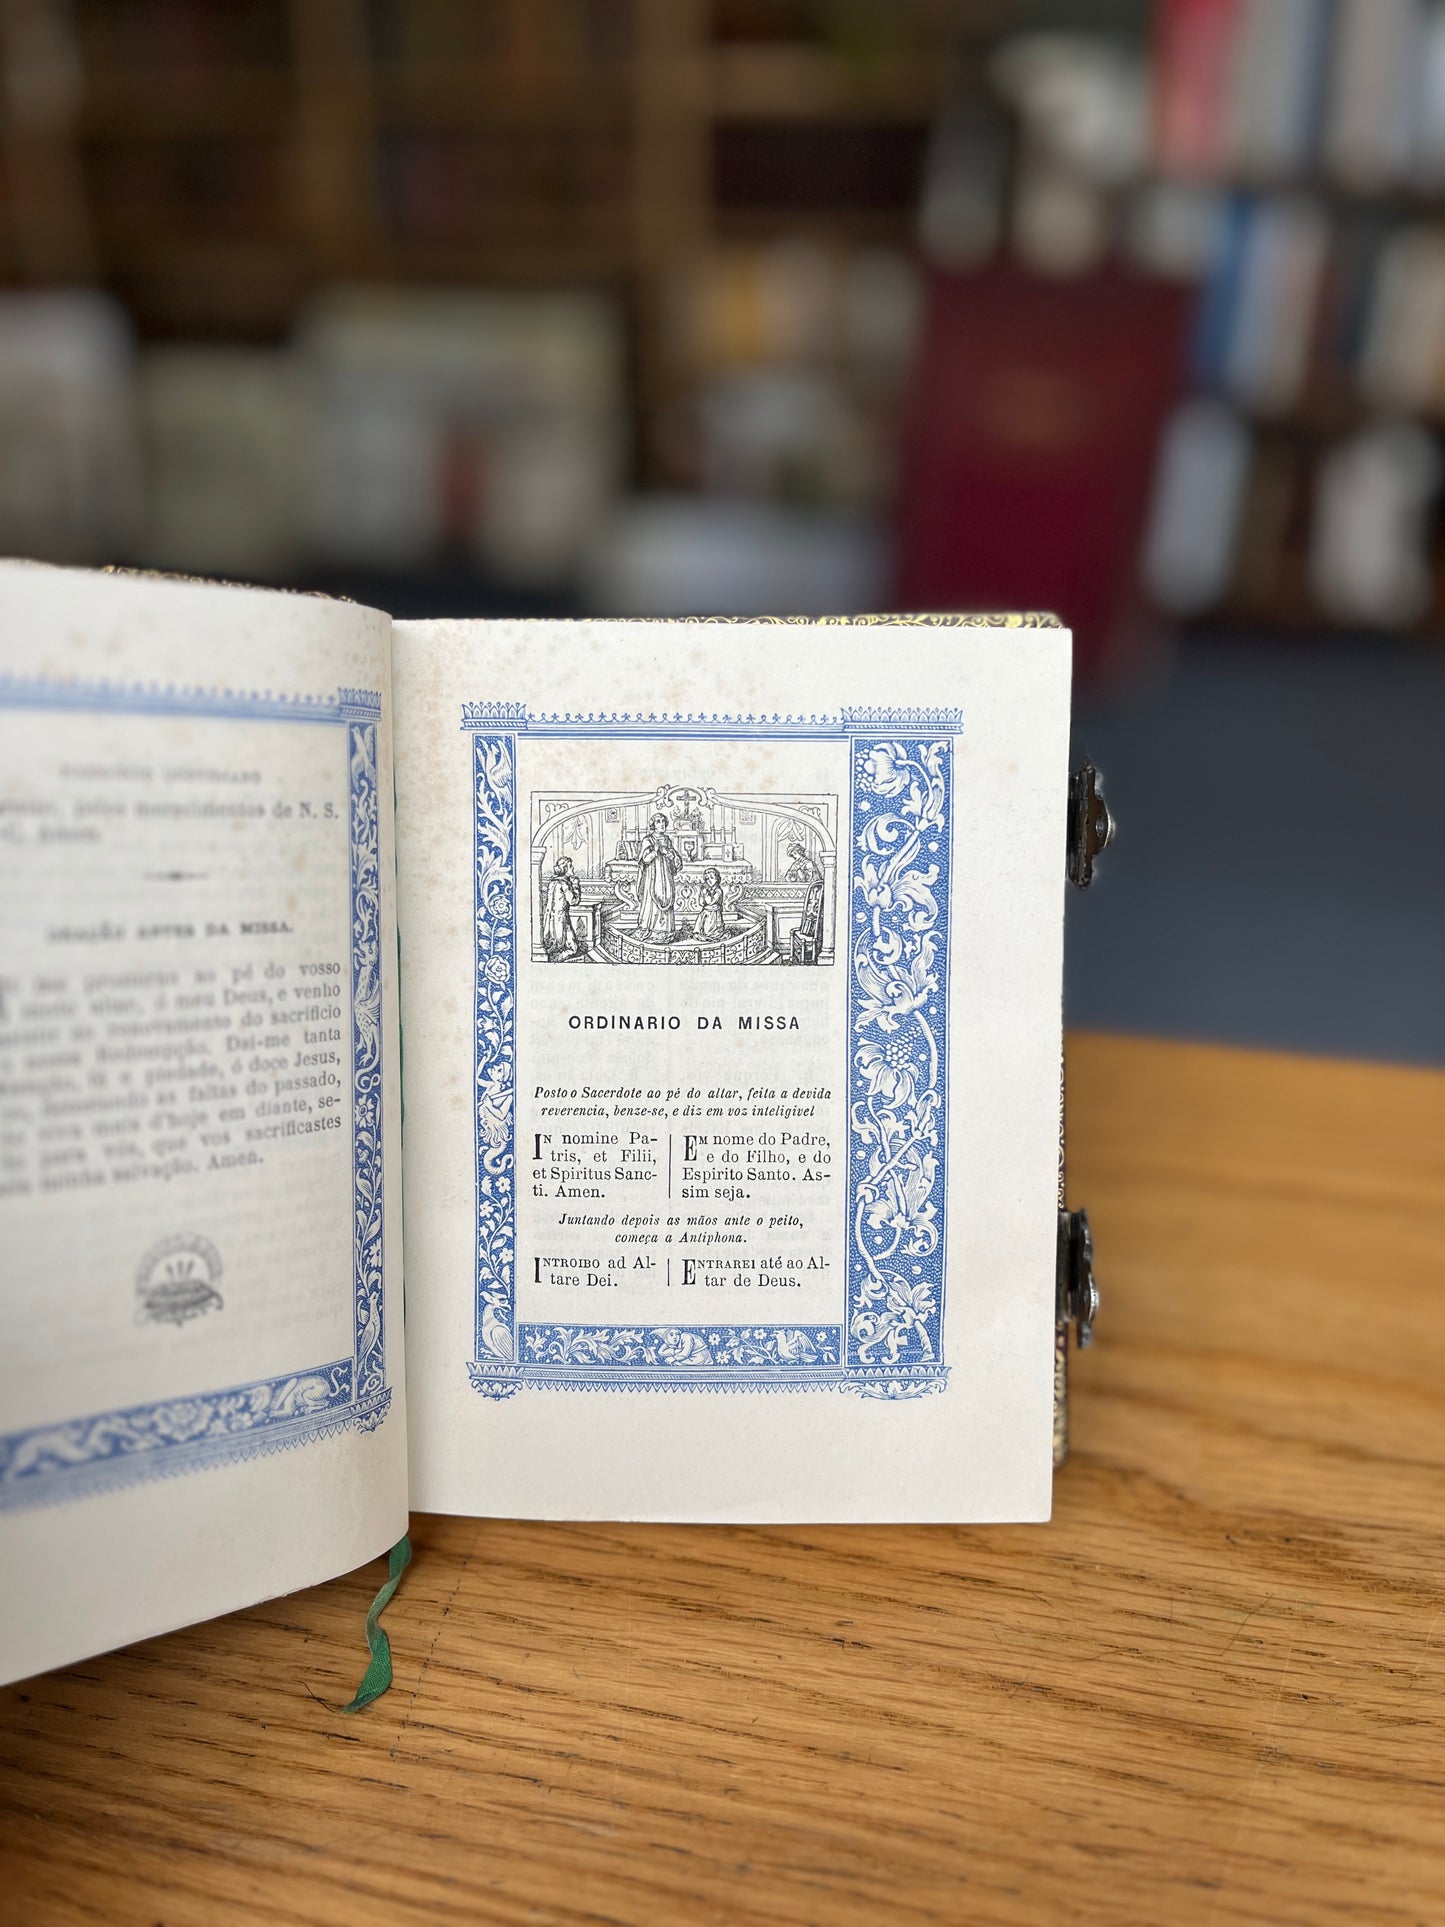 merecimentos de N. S.
Amen.
ORAÇÃO ANTES DA MISSA.
me prostrado ao pé do vosso
altar, ó meu Deus, e venho
ao renovamento do sacrificio
nossa Redempção. Dai-me tanta
e piedade, ó doce Jesus,
as faltas do passado,
mais d'hoje em diante, se-
para vós, que vos sacrificastes
minha salvação. Amen.
ORDINARIO DA MISSA
Posto o Sacerdote ao pé do altar, feita a devida
reverencia, benze-se, e diz em voz inteligivel
IN nomine Pa-
tris, et Filii,
et Spiritus Sanc-
ti. Amen.
EM nome do Padre,
e do Filho, e do
Espirito Santo. As-
sim seja.
Juntando depois as mãos ante o peito,
começa a Antiphona.
INTROIBO ad Al-
tare Dei.
ENTRAREI até ao Al-
tar de Deus.